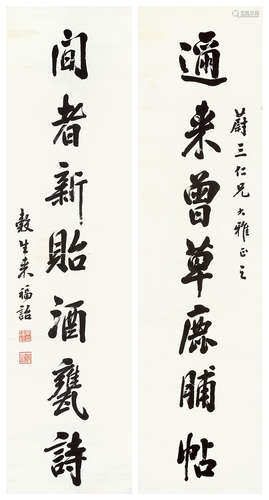 蔚三仁兄大雅正之
邇来曾草鹿脯帖
間者新貽酒甕詩
穀生来福詒